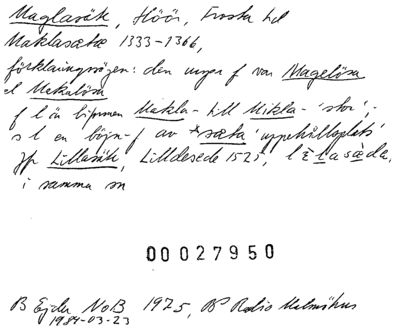 Maglasäte, Höör, Frosta hd
Maklasætæ 1333-1366,
förklaringsvägen: den unga f var Magelösa
el Makalösa
f l är böjnen Makla- till Mikla- 'stor';
s l en böjn-f av *sæta 'uppehållsplats'
Jfr Lillasäte, Lilldesede 1525,
i samma sn
00027950
B Ejder NoB 1975, BE Radio Malmöhus
1984-03-23